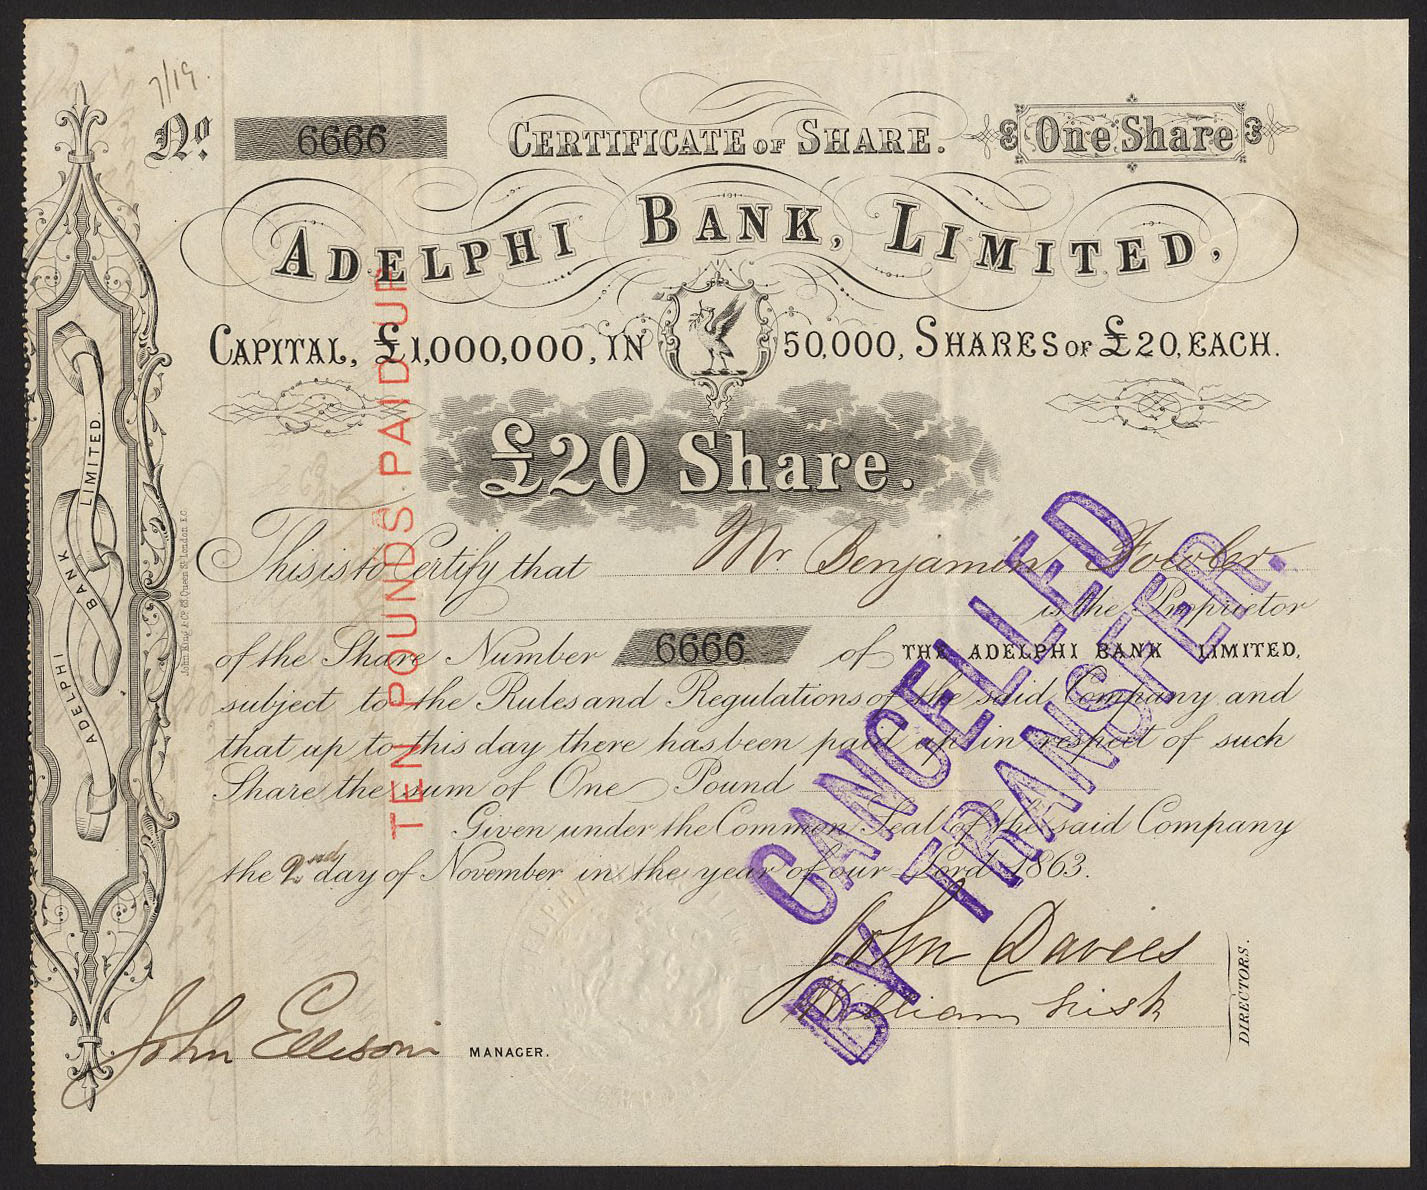 7/19.
No. 6666 CERTIFICATE OF SHARE. One Share
ADELPHI BANK, LIMITED,
CAPITAL, £1,000,000, IN 50,000, SHARES OF £20, EACH.
£20 Share.
This is to Certify that Mr Benjamin Fowler
is the Proprietor
of the Share Number 6666 of THE ADELPHI BANK LIMITED,
subject to the Rules and Regulations of the said Company and
that up to this day there has been paid up in respect of such
Share the sum of One Pound
Given under the Common Seal of the said Company
the 2nd day of November in the year of our Lord 1863.
John Davies
William Lisk
DIRECTORS.
John Ellison MANAGER.
TEN POUNDS PAID UP
CANCELLED
BY TRANSFER.
ADELPHI BANK LIMITED
John King & Co. 63 Queen St. London E.C.